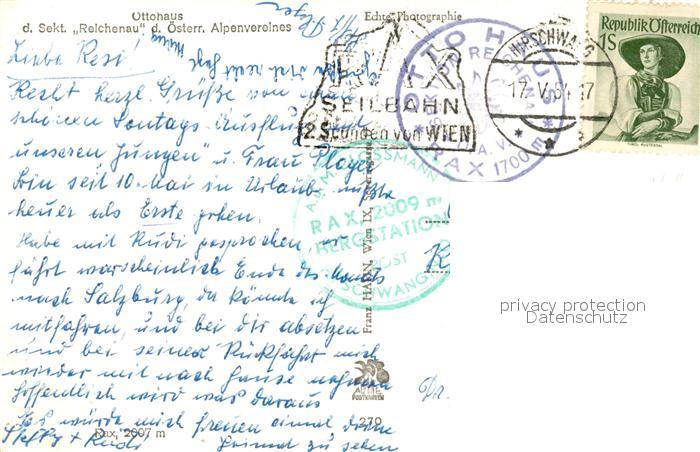 Ottohaus
d. Sekt. „Reichenau" d. Österr. Alpenvereines
Echte Photographie
Liebe Resi!
Recht herzl. Grüße von
schönen Sontags-Ausflug
unseren Jungen" u. Frau
bin seit 10. Mai in Urlaub, mußte
heuer als Erste gehen.
Habe mit Rudi gesprochen, er
fährt warscheinlich Ende des Monats
nach Salzburg, da könnte ich
mitfahren, und bei dir absetzen
und bei seiner Rückfahrt mich
wieder mit nach Hause nehmen
hoffentlich wird was daraus
Es würde mich freuen einmal dein
Heimat zu sehen
Steffy + Rudi
Rax, 2007 m
SEILBAHN
2 Stunden von WIEN
OTTOHAUS
RAX 1700
HIRSCHWANG
17.V.54 17
Republik Österreich
1S
RAX, 2009 m
BERGSTATION
POST
HIRSCHWANG
Franz HAHN, Wien IX,
270
Dr.
privacy protection
Datenschutz